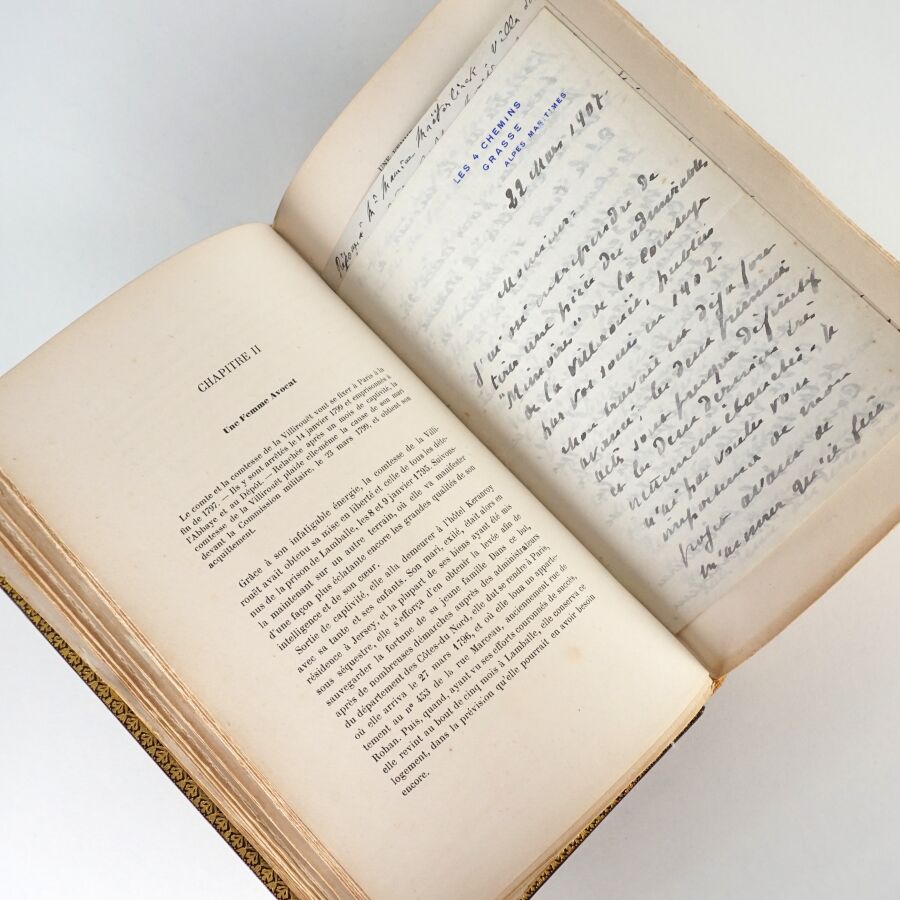 CHAPITRE II
Une Femme Avocat
Le comte et la comtesse de la Villirouët vont se fixer à Paris à la
fin de 1797. — Ils y sont arrêtés le 14 janvier 1799 et emprisonnés à
l'Abbaye et au Dépôt. — Relachée après un mois de captivité, la
comtesse de la Villirouët plaide elle-même la cause de son mari
devant la Commission militaire, le 23 mars 1799, et obtient son
acquittement.
Grâce à son infatigable énergie, la comtesse de la Villi-
rouët avait obtenu sa mise en liberté et celle de tous les déte-
nus de la prison de Lamballe, les 8 et 9 janvier 1795. Suivons-
la maintenant sur un autre terrain, où elle va manifester
d'une façon plus éclatante encore les grandes qualités de son
intelligence et de son cœur.
Sortie de captivité, elle alla demeurer à l'hôtel Keranroy
avec sa tante et ses enfants. Son mari, exilé, était alors en
résidence à Jersey, et la plupart de ses biens ayant été mis
sous séquestre, elle s'efforça d'en obtenir la levée afin de
sauvegarder la fortune de sa jeune famille. Dans ce but,
après de nombreuses démarches auprès des administrateurs
du département des Côtes-du-Nord, elle dut se rendre à Paris,
où elle arriva le 27 mars 1796, et où elle loua un apparte-
tement au n° 453 de la rue Marceau, anciennement rue de
Rohan. Puis, quand, ayant vu ses efforts couronnés de succès,
elle revint au bout de cinq mois à Lamballe, elle conserva ce
logement, dans la prévision qu'elle pourrait en avoir besoin
encore.
UNE
Maeterlinck Villa
LES 4 CHEMINS
GRASSE
ALPES MARITIMES
22 Mars 1907.
Monsieur
J'ai osé entreprendre de
tirer une pièce des admirables
"Mémoires" de la Comtesse
de la Villirouët, publiés
par vos soins en 1902.
Mon travail est déjà fort
avancé. Les deux premiers
actes sont presque définitifs
et les deux derniers très
nettement ébauchés. Je
n'ai pas voulu vous
importuner de mon
projet avant de
m'assurer qu'il